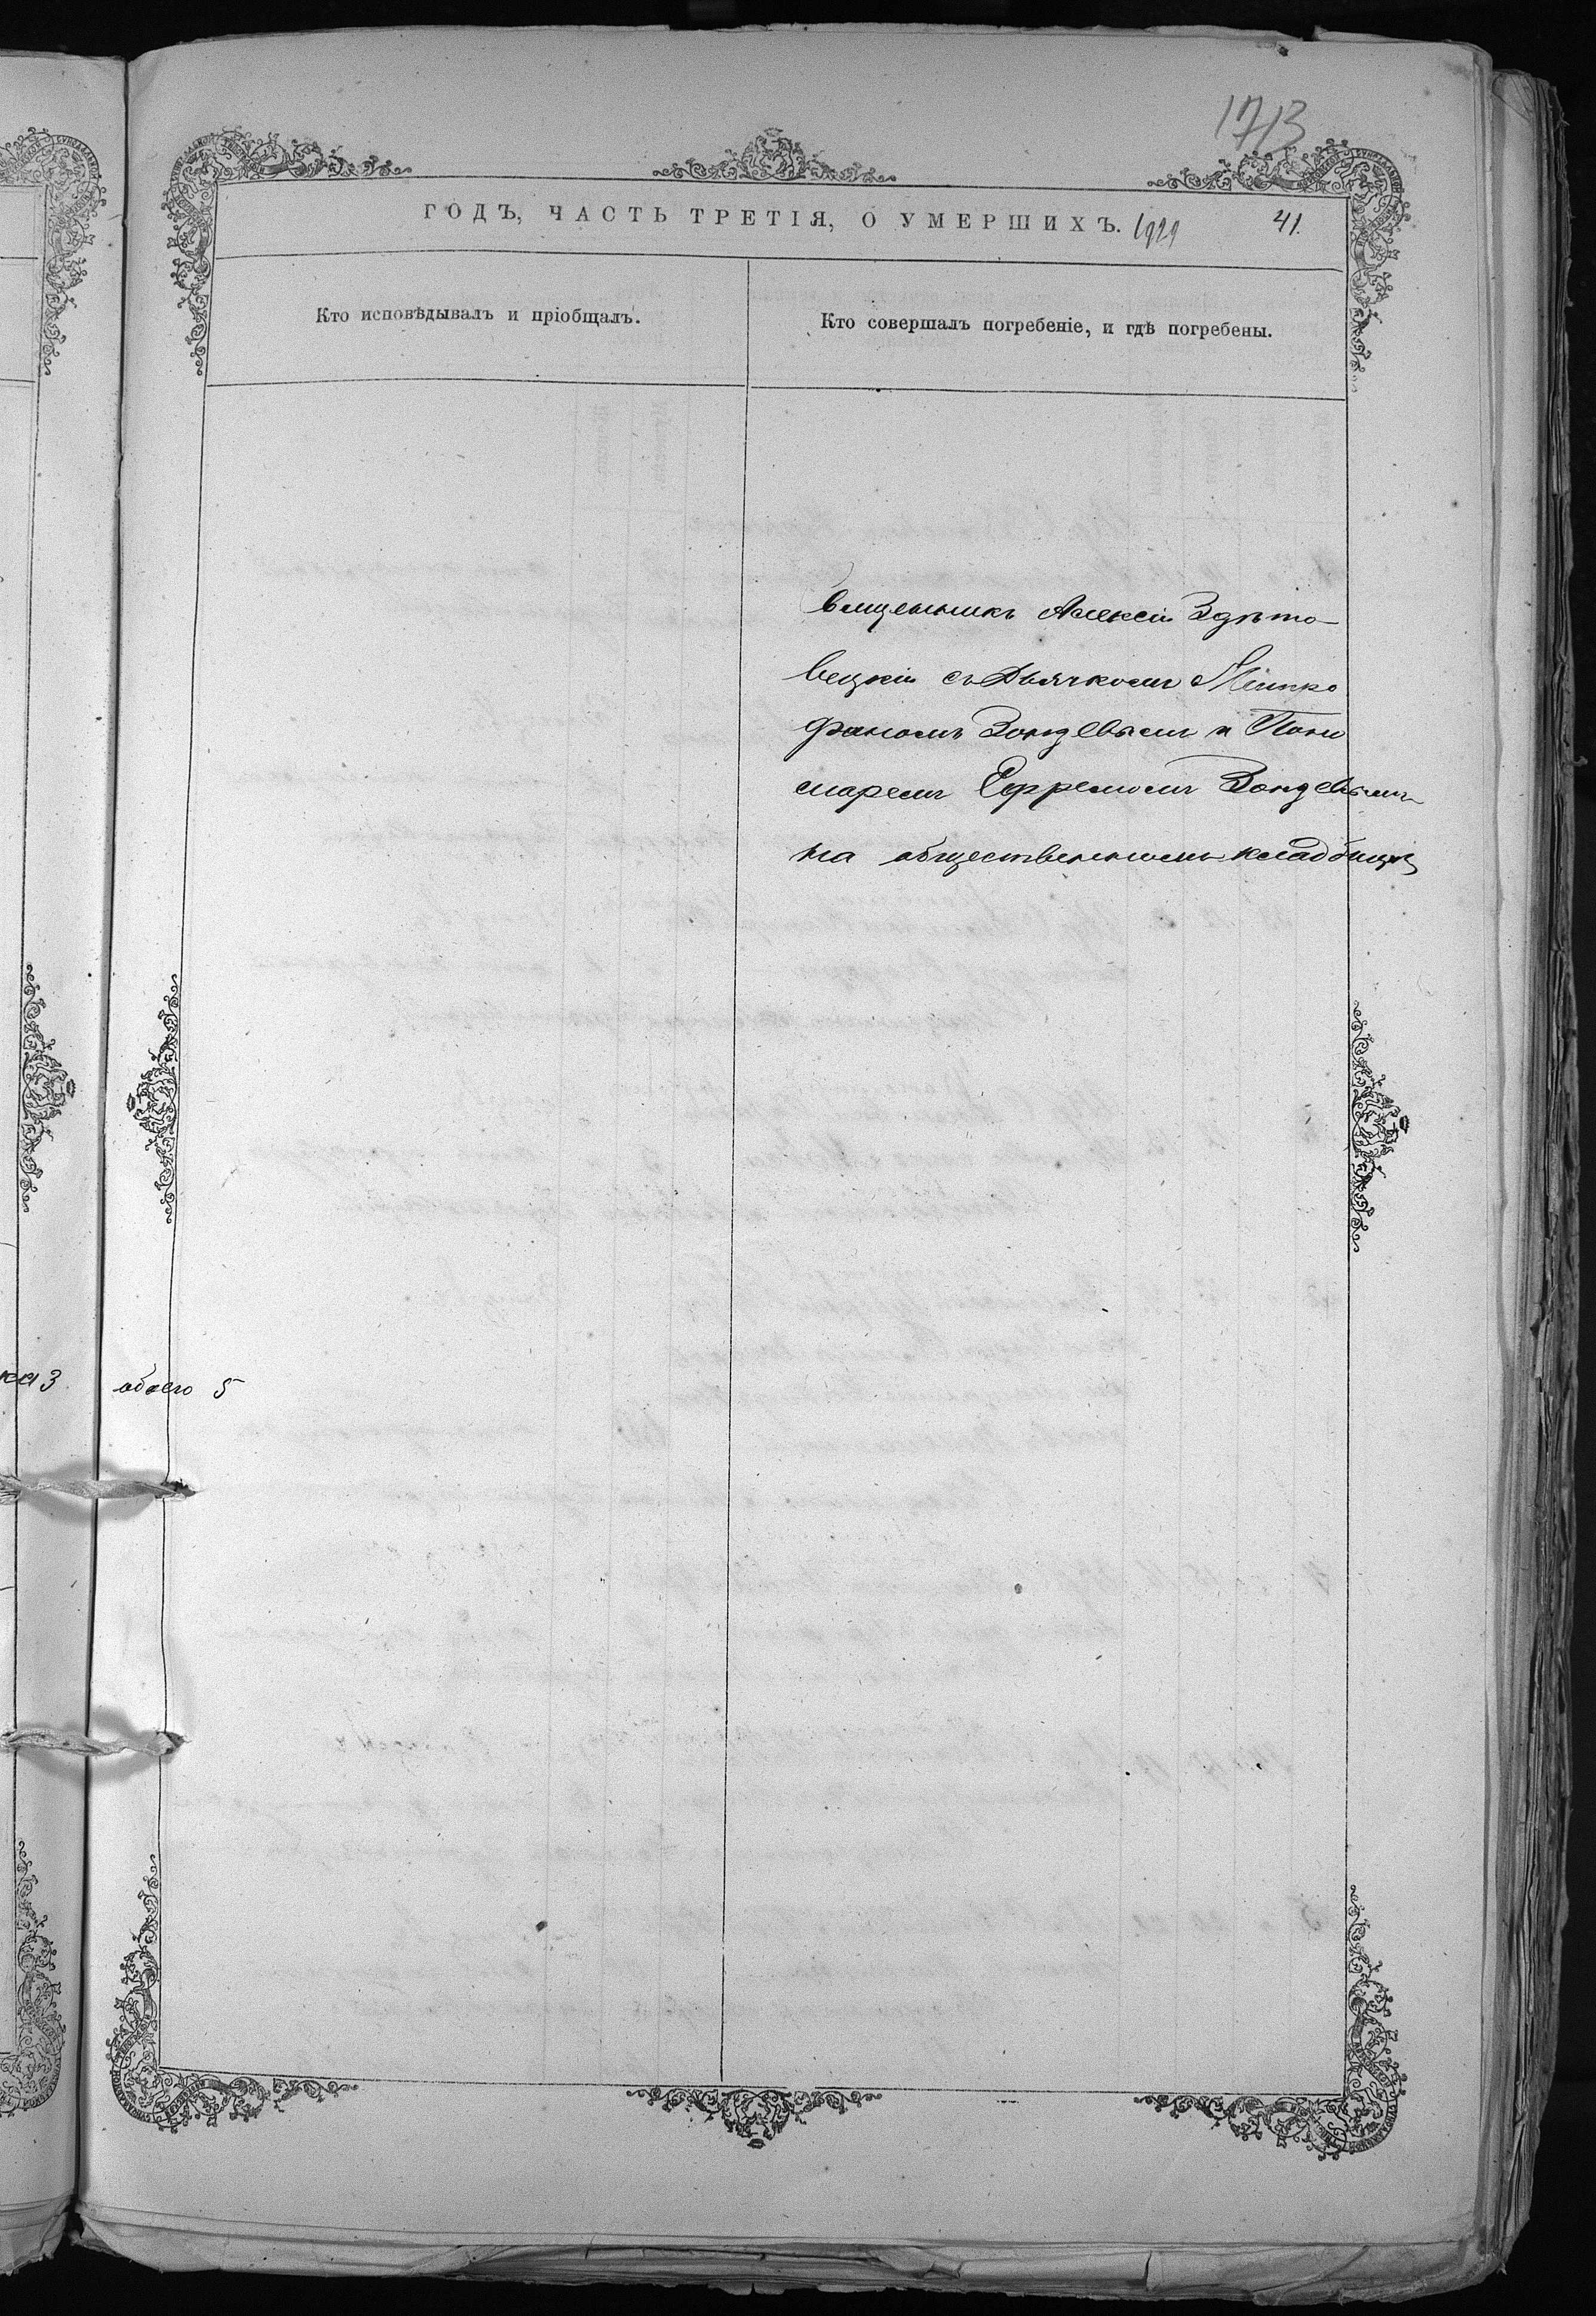 1713
ГОДЪ, ЧАСТЬ ТРЕТІЯ, О УМЕРШИХЪ. 1929 41.
Кто исповѣдывалъ и пріобщалъ.
Кто совершалъ погребеніе, и гдѣ погребены.
Священникъ Алексій Здѣто-
вецкій съ Дьячкомъ Митро
фаномъ Зонздевымъ и Поно
маремъ Ефремомъ
на общественномъ кладбищѣ
3 обоего 5